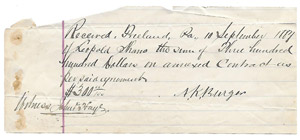 Received, Freeland, Pa, 10 September 1894
of Leopold the sum of Three hundred
hundred Dollars on annexed Contract as
per said agreement
$300
N. R. Burger
Witness,